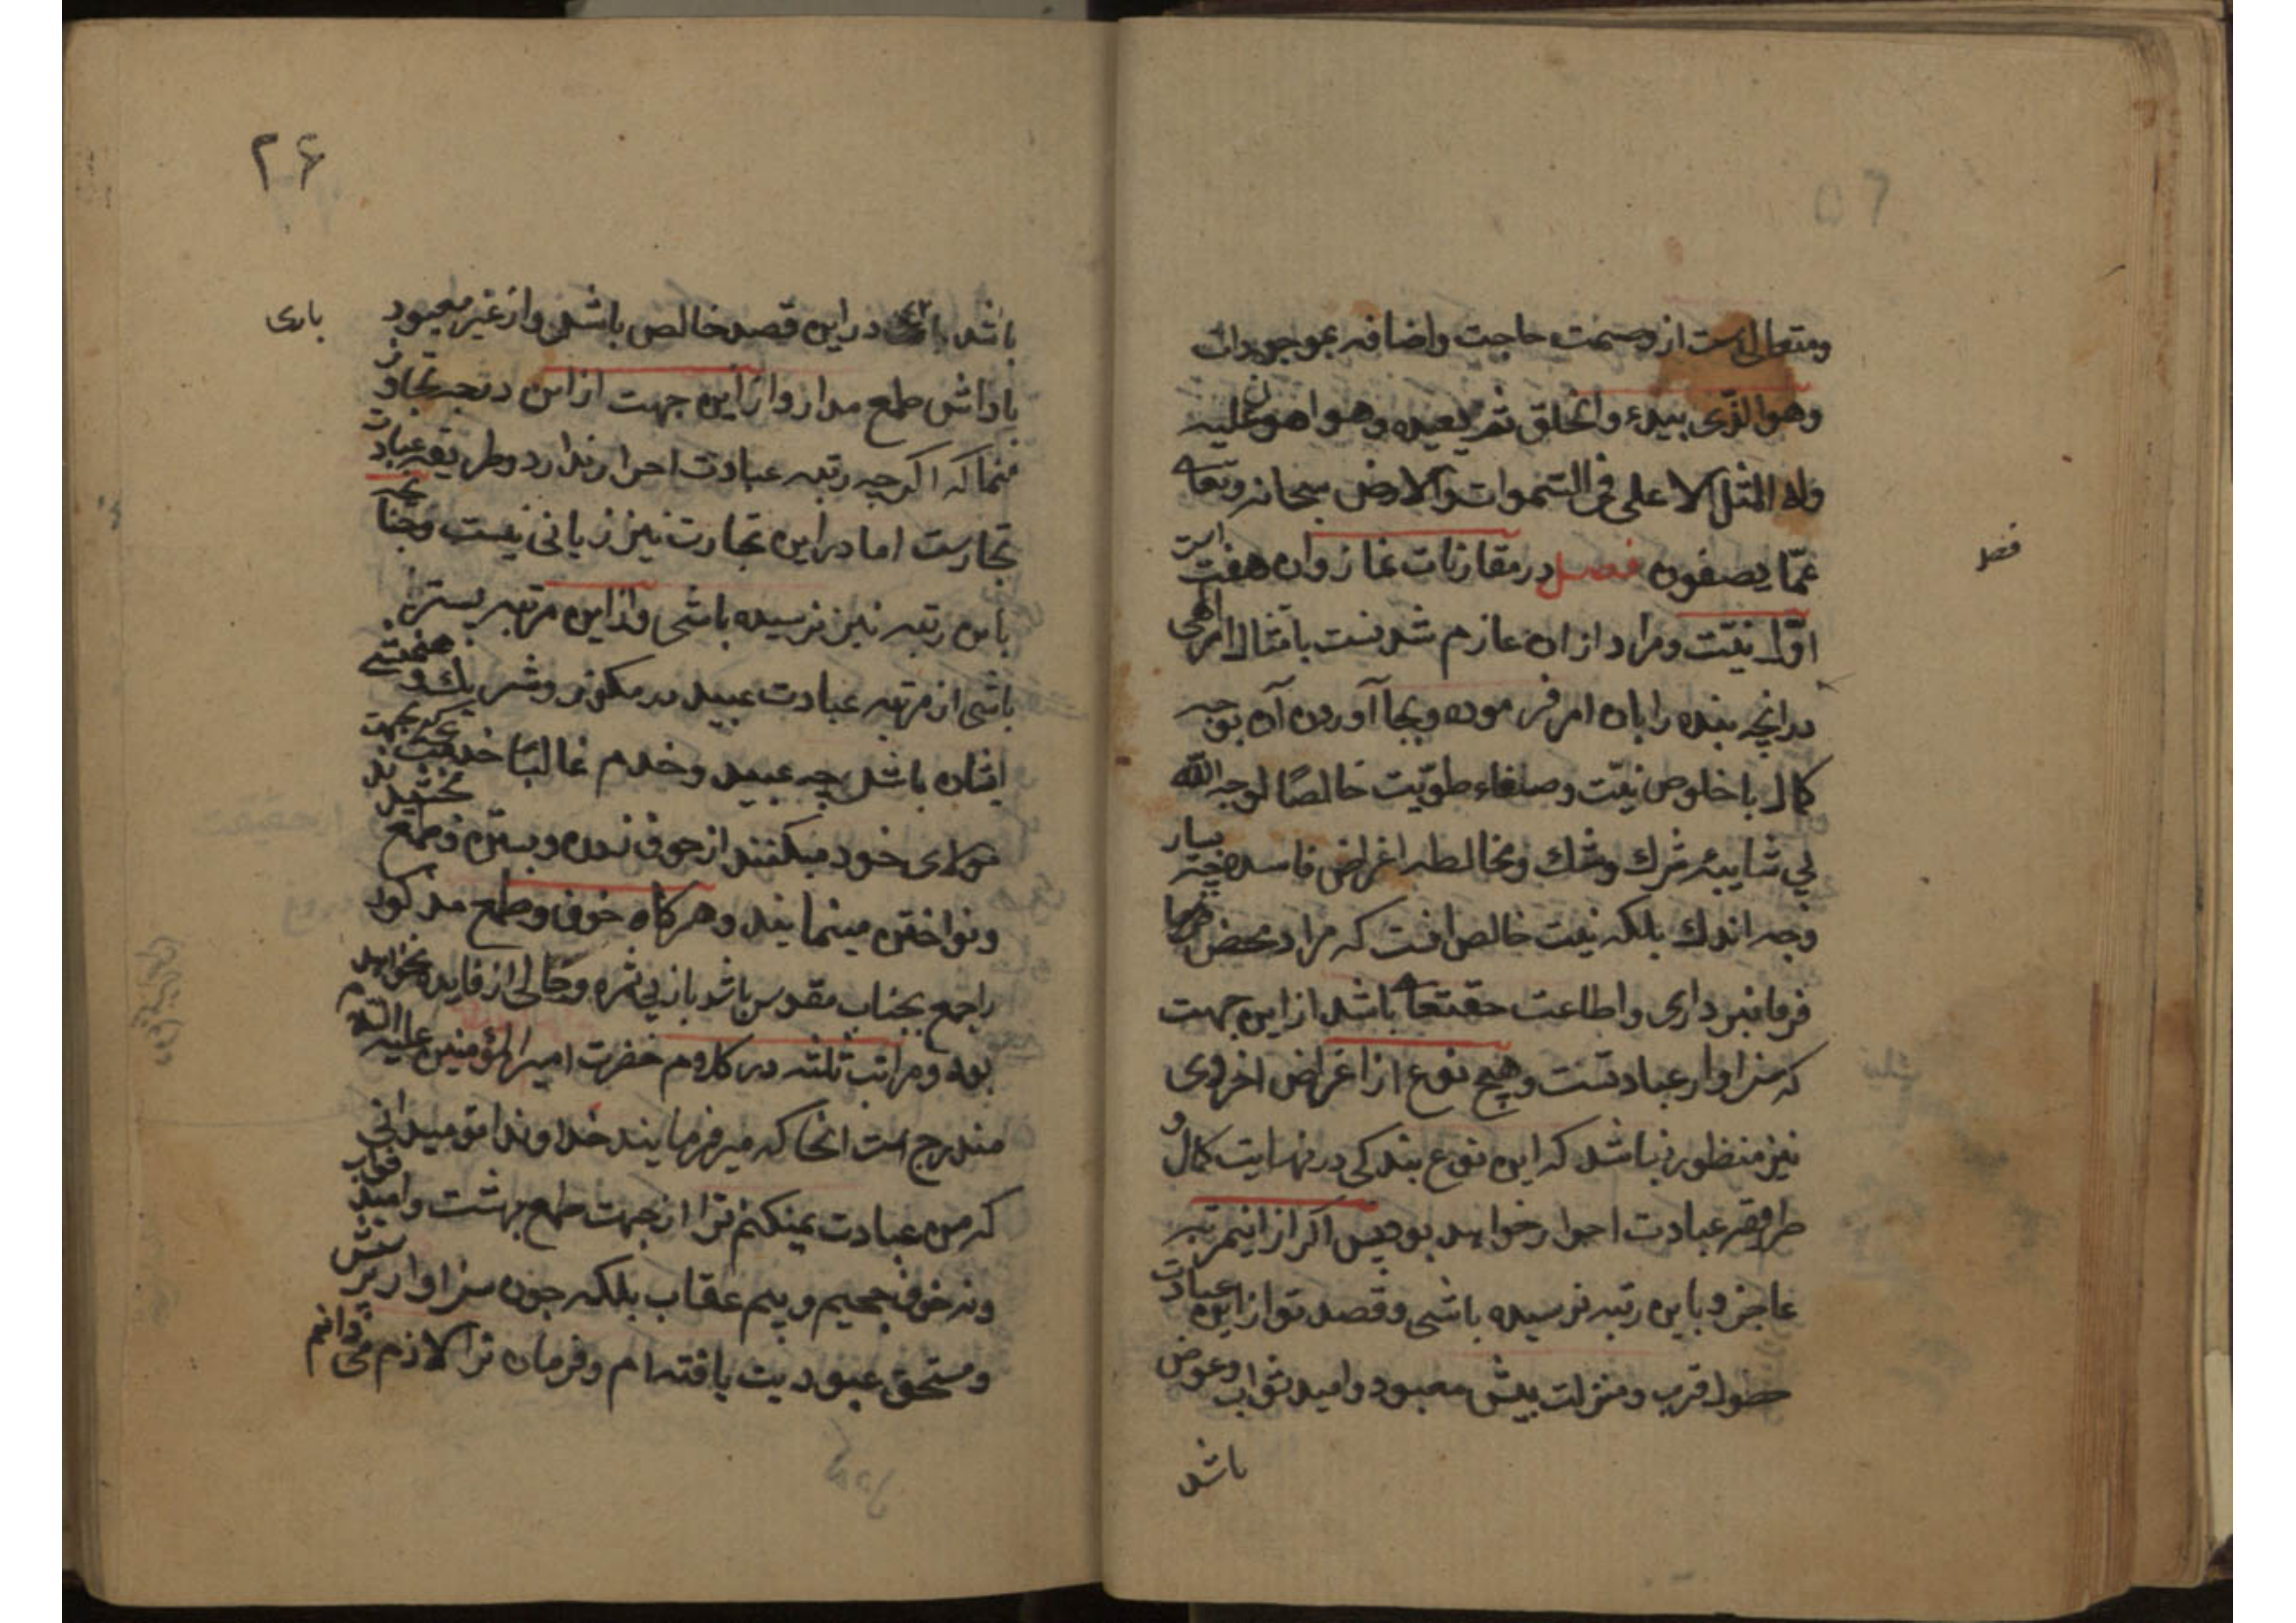 ومتعالیست از وصمت حاجت واضافه بموجودات
وهو الذی یبدء والخلق ثم یعیده وهو اهون علیه
وله المثل الاعلی فی السموات والارض سبحانه وتعا
عمّا یصفون فصل در مقارنات نماز وان هفت است
فصل
اوّل نیّت ومراد ازان عازم شدنست بامتثال امر الهی
درانچه بنده را بان امر فرموده وبجا آوردن آن بوجه
کمال با خلوص نیّت وصفاء طویّت خالصًا لوجه الله
بی شایبه شرك وشك ومخالطه اغراض فاسده چه بسیار
وجه اندك بلکه نیت خالص انست که مراد محض
فرمانبرداری واطاعت حقتعا باشد از این جهت
که سزاوار عبادتست وهیچ نوع از اغراض اخروی
نیز منظور نباشد که این نوع بندکی در نهایت کمال و
طریقه عبادت احرار خواهد بود پس اکر از اینمرتبه
عاجز وباین رتبه نرسیده باشی وقصد تو از این عبادت
حصول قرب ومنزلت پیش معبود وامید ثواب وعوض
باشد
۲۶
باشد باری در این قصد خالص باش واز غیر معبود
باری
پاداش طمع مدار واز این جهت از این درجه تجاوز
منما که اکرچه رتبه عبادت احرار ندارد وطریقه عبادت
تجارست اما در این تجارت نیز زیانی نیست وچنانچه
باین رتبه نیز نرسیده باشی واز این مرتبه پستر
باشی از مرتبه عبادت عبید در مکذر وشریك
افتاده باش چه عبید وخدم غالبًا خدمت بجهت
مولای خود میکنند از خوف زدن وبستن وطمع بخشیدن
ونواختن مینمایند وهرکاه خوف وطمع مذکور
راجع بجناب مقدس باشد باز بی ثمره وخالی از فایده نخواهد
بود ومراتب ثلثه در کلام حضرت امیرالمؤمنین علیه السلام
مندرج است انجا که میفرمایند خداوندا تو میدانی
که من عبادت نمیکنم ترا از جهت طمع بهشت وامید ثواب
ونه خوف جحیم وبیم عقاب بلکه چون سزاوار پرستش
ومستحق عبودیت یافته ام وفرمان ترا لازم می دانم